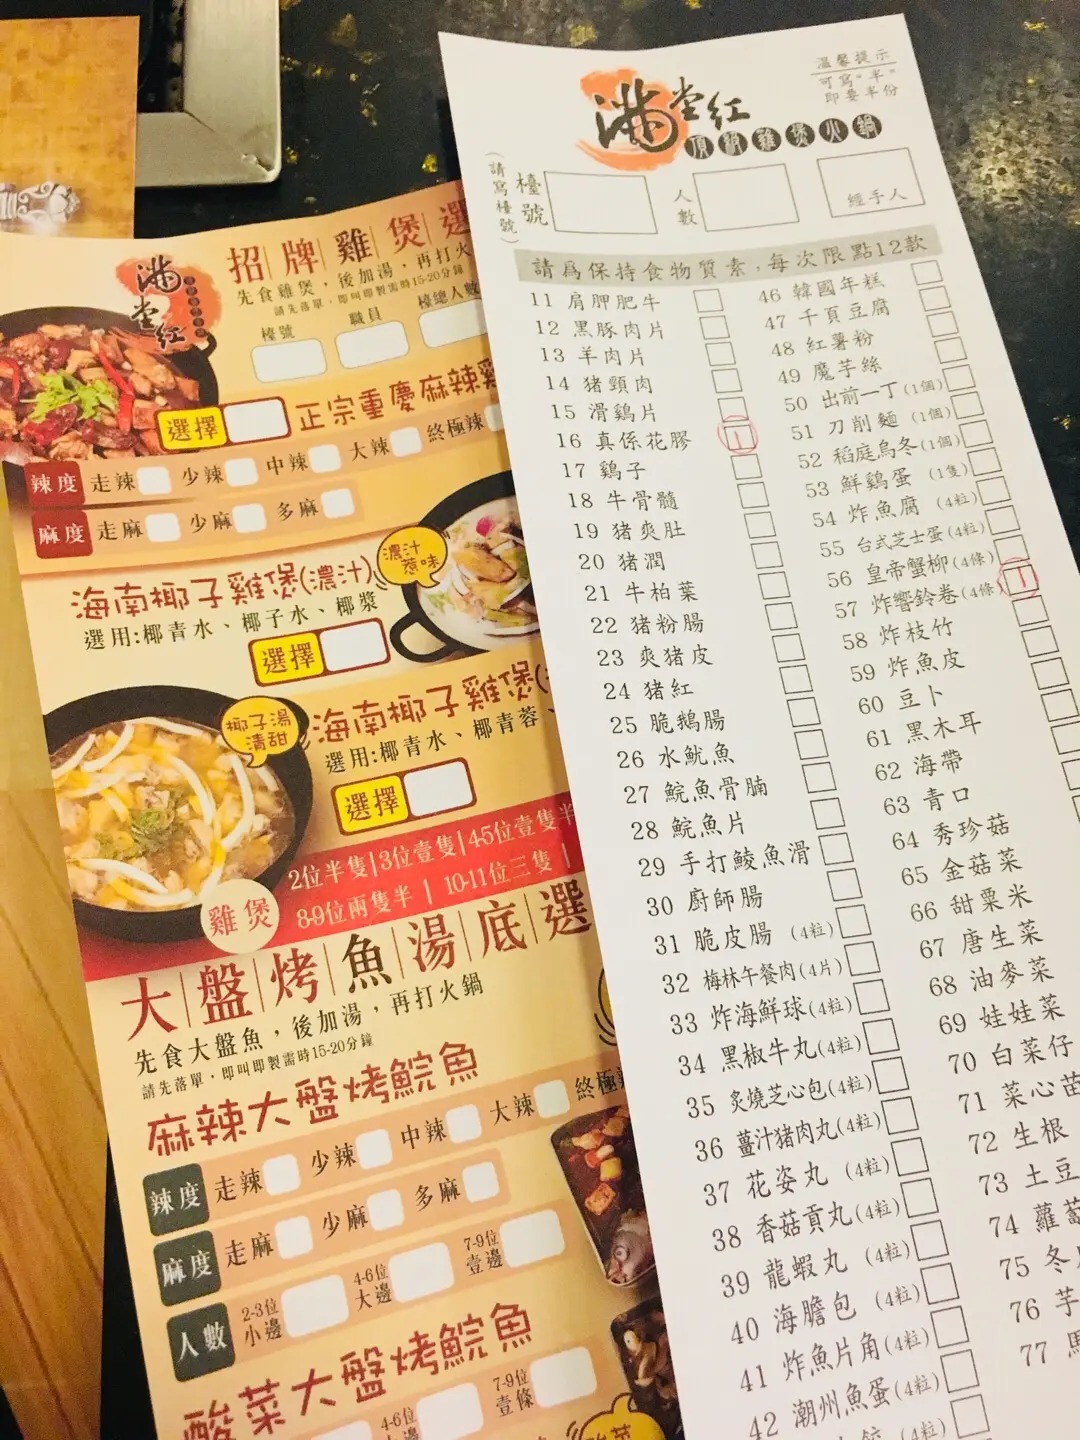 滿堂紅
招牌雞煲選
先食雞煲,後加湯,再打火
請先落單,即叫即製需時15-20分鐘
檯號
職員
檯總人數
選擇
正宗重慶麻辣雞
辣度 走辣 少辣 中辣 大辣 終極辣
麻度 走麻 少麻 多麻
海南椰子雞煲(濃汁)
濃汁
惹味
選用:椰青水、椰子水、椰漿
選擇
椰子湯
清甜
海南椰子雞煲(
選用:椰青水、椰青蓉、
選擇
雞煲
2位半隻|3位壹隻|4-5位壹隻半
8-9位兩隻半 | 10-11位三隻 |
大盤烤魚湯底選
先食大盤魚,後加湯,再打火鍋
請先落單,即叫即製需時15-20分鐘
麻辣大盤烤鯇魚
辣度 走辣 少辣 中辣 大辣 終極辣
麻度 走麻 少麻 多麻
人數 2-3位 小邊 4-6位 大邊 7-9位 壹邊
酸菜大盤烤鯇魚
4-6位
7-9位
壹條
滿堂紅
頂級雞煲火鍋
溫馨提示
可寫"半"
即要半份
(請寫檯號)
檯號
人數
經手人
請爲保持食物質素,每次限點12款
11 肩胛肥牛
12 黑豚肉片
13 羊肉片
14 猪頸肉
15 滑鷄片
16 真係花膠 1
17 鷄子
18 牛骨髓
19 猪爽肚
20 猪潤
21 牛柏葉
22 猪粉腸
23 爽猪皮
24 猪紅
25 脆鵝腸
26 水魷魚
27 鯇魚骨腩
28 鯇魚片
29 手打鯪魚滑
30 廚師腸
31 脆皮腸 (4粒)
32 梅林午餐肉(4片)
33 炸海鮮球(4粒)
34 黑椒牛丸(4粒)
35 炙燒芝心包(4粒)
36 薑汁猪肉丸(4粒)
37 花姿丸 (4粒)
38 香菇貢丸(4粒)
39 龍蝦丸 (4粒)
40 海膽包 (4粒)
41 炸魚片角(4粒)
42 潮州魚蛋(4粒)
(4粒)
46 韓國年糕
47 千頁豆腐
48 紅薯粉
49 魔芋絲
50 出前一丁(1個)
51 刀削麵 (1個)
52 稻庭烏冬(1個)
53 鮮鷄蛋 (1隻)
54 炸魚腐 (4粒)
55 台式芝士蛋(4粒)
56 皇帝蟹柳(4條)
57 炸響鈴卷(4條) 1
58 炸枝竹
59 炸魚皮
60 豆卜
61 黑木耳
62 海帶
63 青口
64 秀珍菇
65 金菇菜
66 甜粟米
67 唐生菜
68 油麥菜
69 娃娃菜
70 白菜仔
71 菜心苗
72 生根
73 土豆
74 蘿蔔
75 冬
76 芋
77